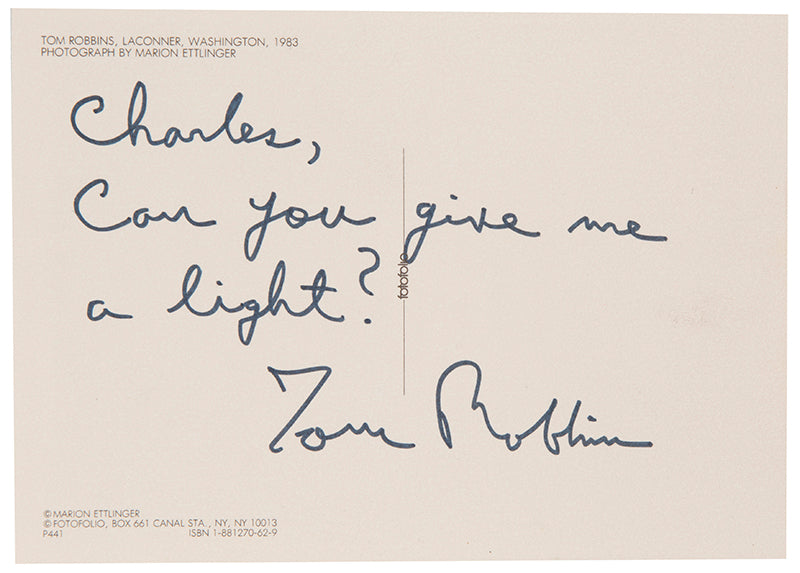 TOM ROBBINS, LACONNER, WASHINGTON, 1983
PHOTOGRAPH BY MARION ETTLINGER
Charles,
Can you give me
a light?
fotofolio
Tom Robbins
© MARION ETTLINGER
© FOTOFOLIO, BOX 661 CANAL STA., NY, NY 10013
P441 ISBN 1-881270-62-9